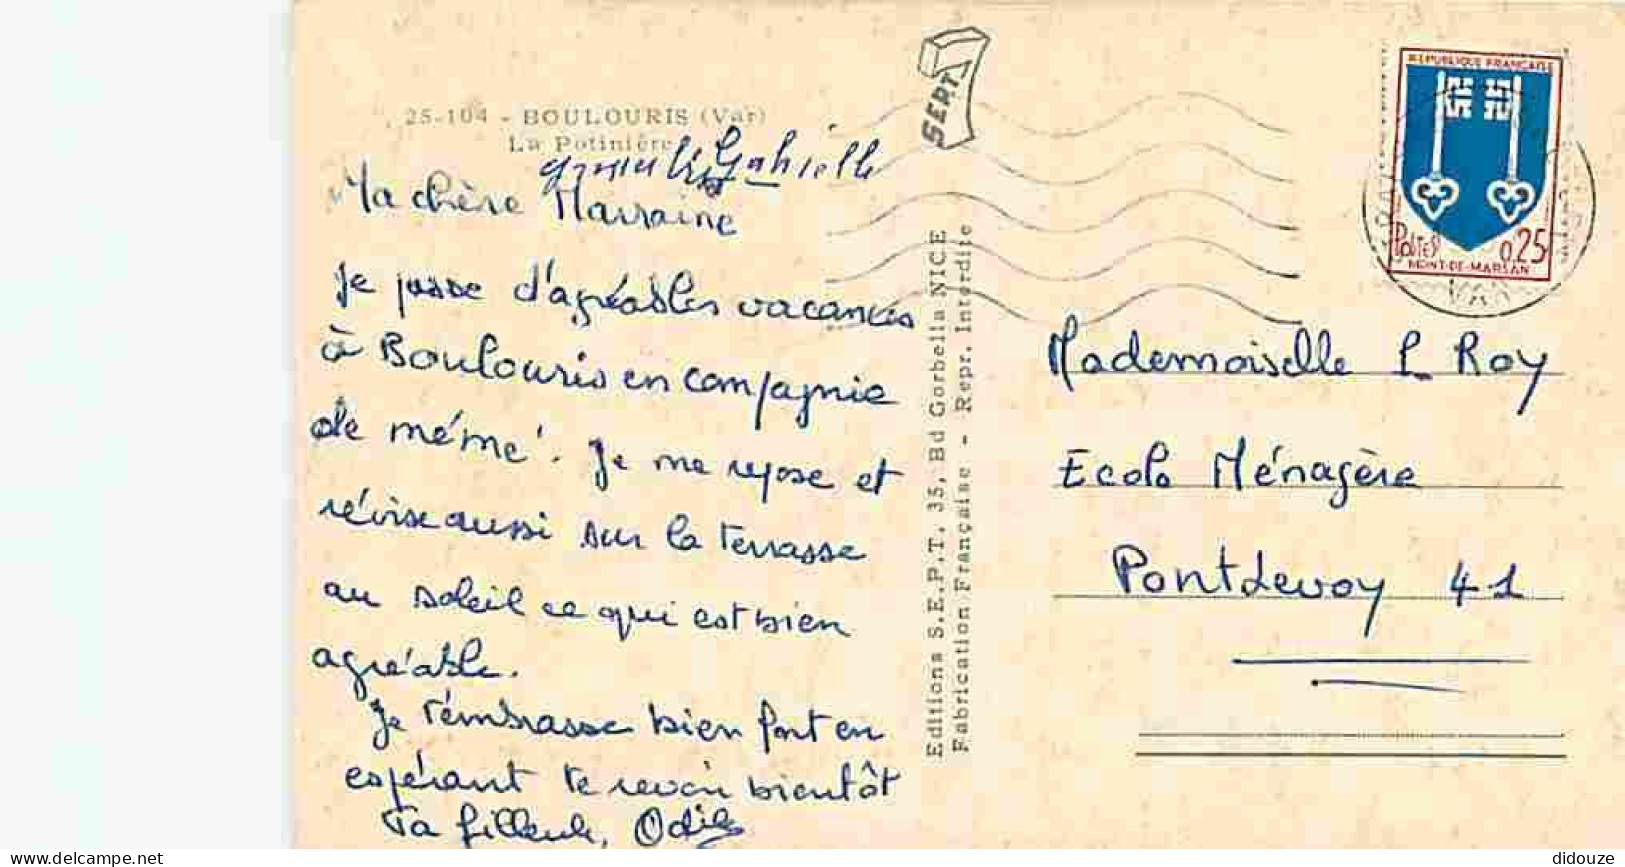 25-104 - BOULOURIS (Var)
La Potinière
Gabrielle
Ma chère Marraine
Je passe d'agréables vacances
à Boulouris en compagnie
de mémé. Je me repose et
révise aussi sur la terrasse
au soleil ce qui est bien
agréable.
Je t'embrasse bien fort en
espérant te revoir bientôt
Ta filleule, Odile
SEPT
Editions S.E.P.T. 35, Bd Gorbella NICE
Fabrication Française - Repr. Interdite
REPUBLIQUE FRANÇAISE
POSTES 0,25
MONT-DE-MARSAN
Mademoiselle L Roy
Ecole Ménagère
Pontlevoy 41
www.delcampe.net
didouze